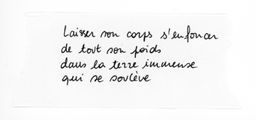 Laisser son corps s'enfoncer
de tout son poids
dans la terre immense
qui se soulève